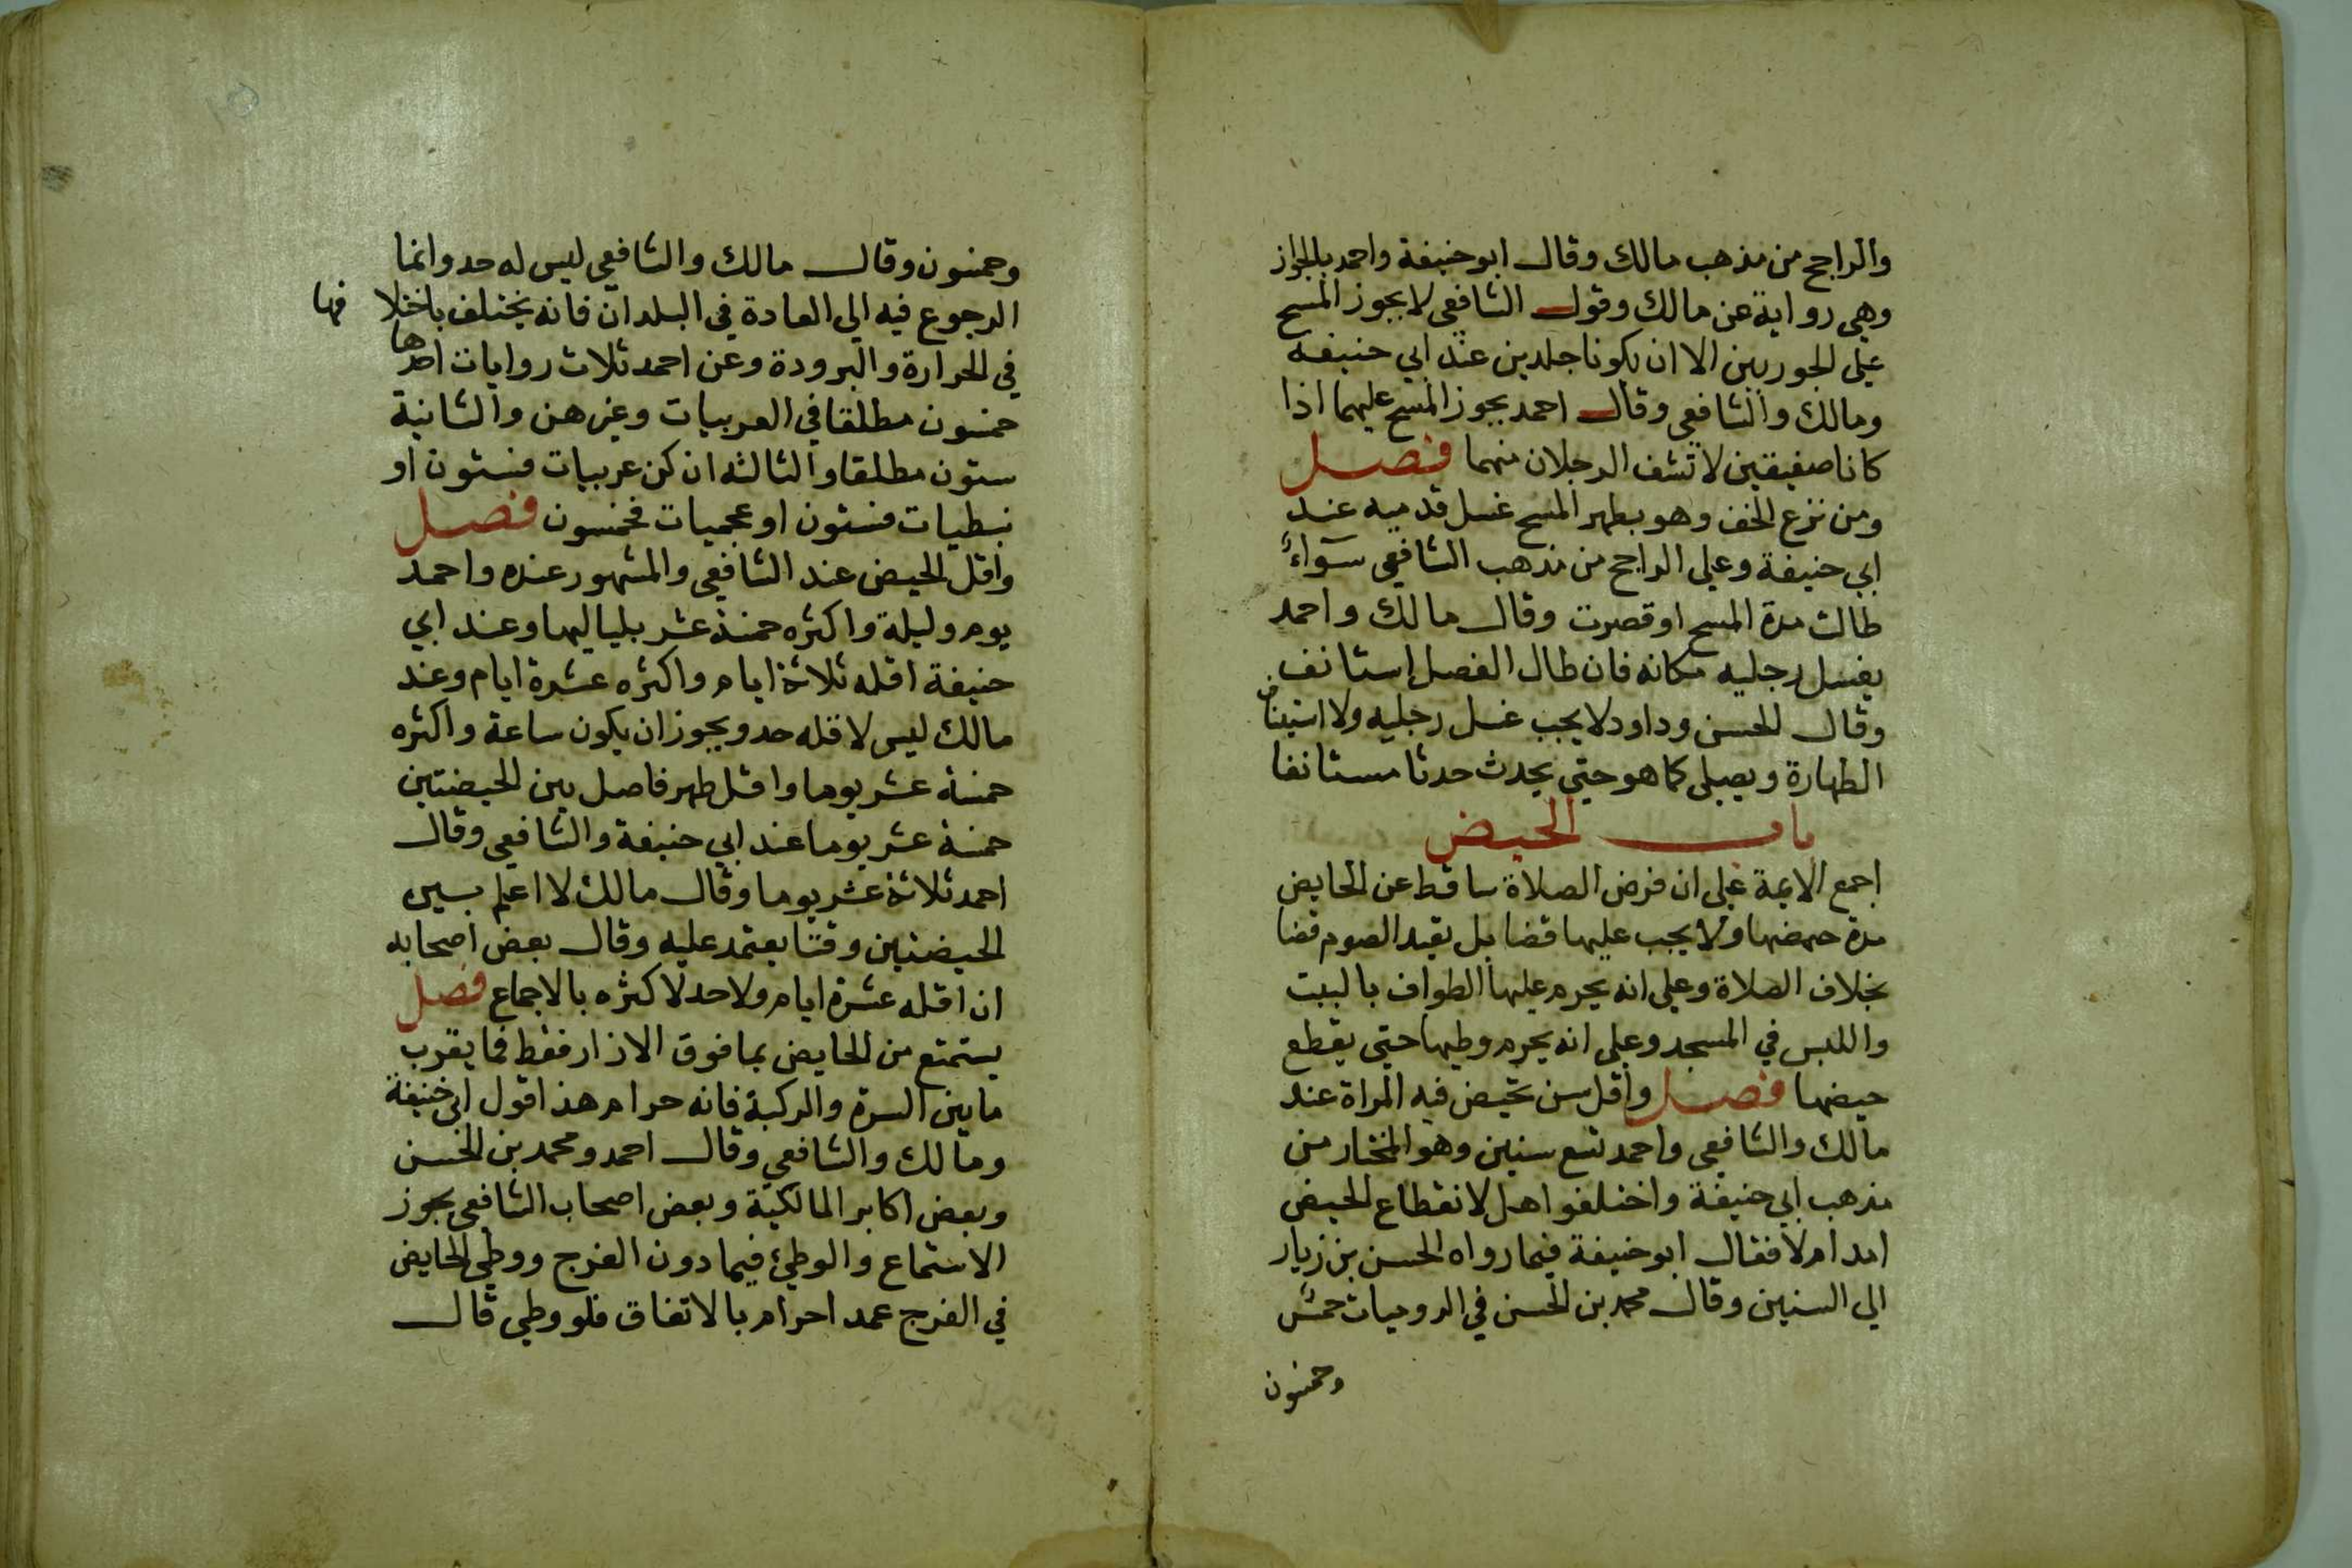 والراجح من مذهب مالك وقال ابو حنيفة واحمد بالجواز
وهي رواية عن مالك وقول الشافعي لا يجوز المسح
علي الجوربين الا ان يكونا جلدين عند ابي حنيفة
ومالك والشافعي وقال احمد يجوز المسح عليهما اذا
كانا صفيقين لا تشف الرجلان منهما فصل
ومن نزع الخف وهو بطهر المسح غسل قدميه عند
ابي حنيفة وعلي الراجح من مذهب الشافعي سواء
طالت مدة المسح او قصرت وقال مالك واحمد
يغسل رجليه مكانه فان طال الفصل استانف
وقال الحسن وداود لا يجب غسل رجليه ولا استيناف
الطهارة ويصلي كما هو حتي يحدث حدثا مستانفا
باب الحيض
اجمع الايمة علي ان فرض الصلاة ساقط عن الحايض
مدة حيضها ولا يجب عليها قضا بل يقيد الصوم قضا
بخلاف الصلاة وعلي انه يحرم عليها الطواف بالبيت
واللبس في المسجد وعلي انه يحرم وطيها حتي يقطع
حيضها فصل واقل سن تحيض فيه المراة عند
مالك والشافعي واحمد تسع سنين وهو المختار من
مذهب ابي حنيفة واختلفوا هل لانقطاع الحيض
امد ام لا فقال ابو حنيفة فيما رواه الحسن بن زياد
الي الستين وقال محمد بن الحسن في الروميات خمس
وخمسون
وخمسون وقال مالك والشافعي ليس له حد وانما
الرجوع فيه الي العادة في البلدان فانه يختلف باختلا فها
في الحرارة والبرودة وعن احمد ثلاث روايات احدها
خمسون مطلقا في العربيات وغيرهن والثانية
ستون مطلقا والثالثه ان كن عربيات فستون او
نبطيات فستون او عجميات فخمسون فصل
واقل الحيض عند الشافعي والمشهور عنده واحمد
يوم وليلة واكثره خمسة عشر بلياليها وعند ابي
حنيفة اقله ثلاثة ايام واكثره عشرة ايام وعند
مالك ليس لاقله حد ويجوز ان يكون ساعة واكثره
خمسة عشر يوما واقل طهر فاصل بين الحيضتين
خمسة عشر يوما عند ابي حنيفة والشافعي وقال
احمد ثلاثة عشر يوما وقال مالك لا اعلم بين
الحيضتين وقتا يعتمد عليه وقال بعض اصحابه
ان اقله عشرة ايام ولا حد لاكثره بالاجماع فصل
يستمتع من الحايض بما فوق الازار فقط فما يقرب
ما بين السرة والركبة فانه حرام هذا قول ابي حنيفة
ومالك والشافعي وقال احمد ومحمد بن الحسن
وبعض اكابر المالكية وبعض اصحاب الشافعي يجوز
الاستماع والوطئ فيما دون الفرج ووطي الحايض
في الفرج عمدا حرام بالاتفاق فلو وطي قال